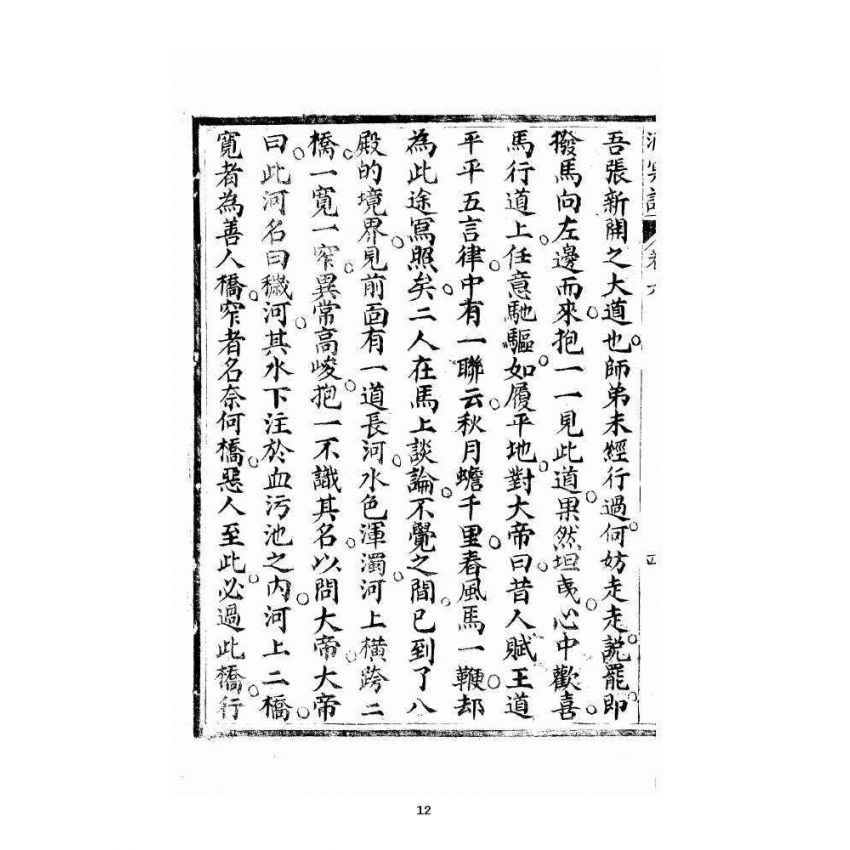 卷六
四
吾張新開之大道也師弟未經行過何妨走走說罷即
撥馬向左邊而來抱一一見此道果然坦夷心中歡喜
馬行道上任意馳驅如履平地對大帝曰昔人賦王道
平平五言律中有一聯云秋月蟾千里春風馬一鞭却
為此途寫照矣二人在馬上談論不覺之間已到了八
殿的境界見前面有一道長河水色渾濁河上橫跨二
橋一寬一窄異常高峻抱一不識其名以問大帝大帝
曰此河名曰穢河其水下注於血污池之內河上二橋
寬者為善人橋窄者名奈何橋惡人至此必過此橋行
12